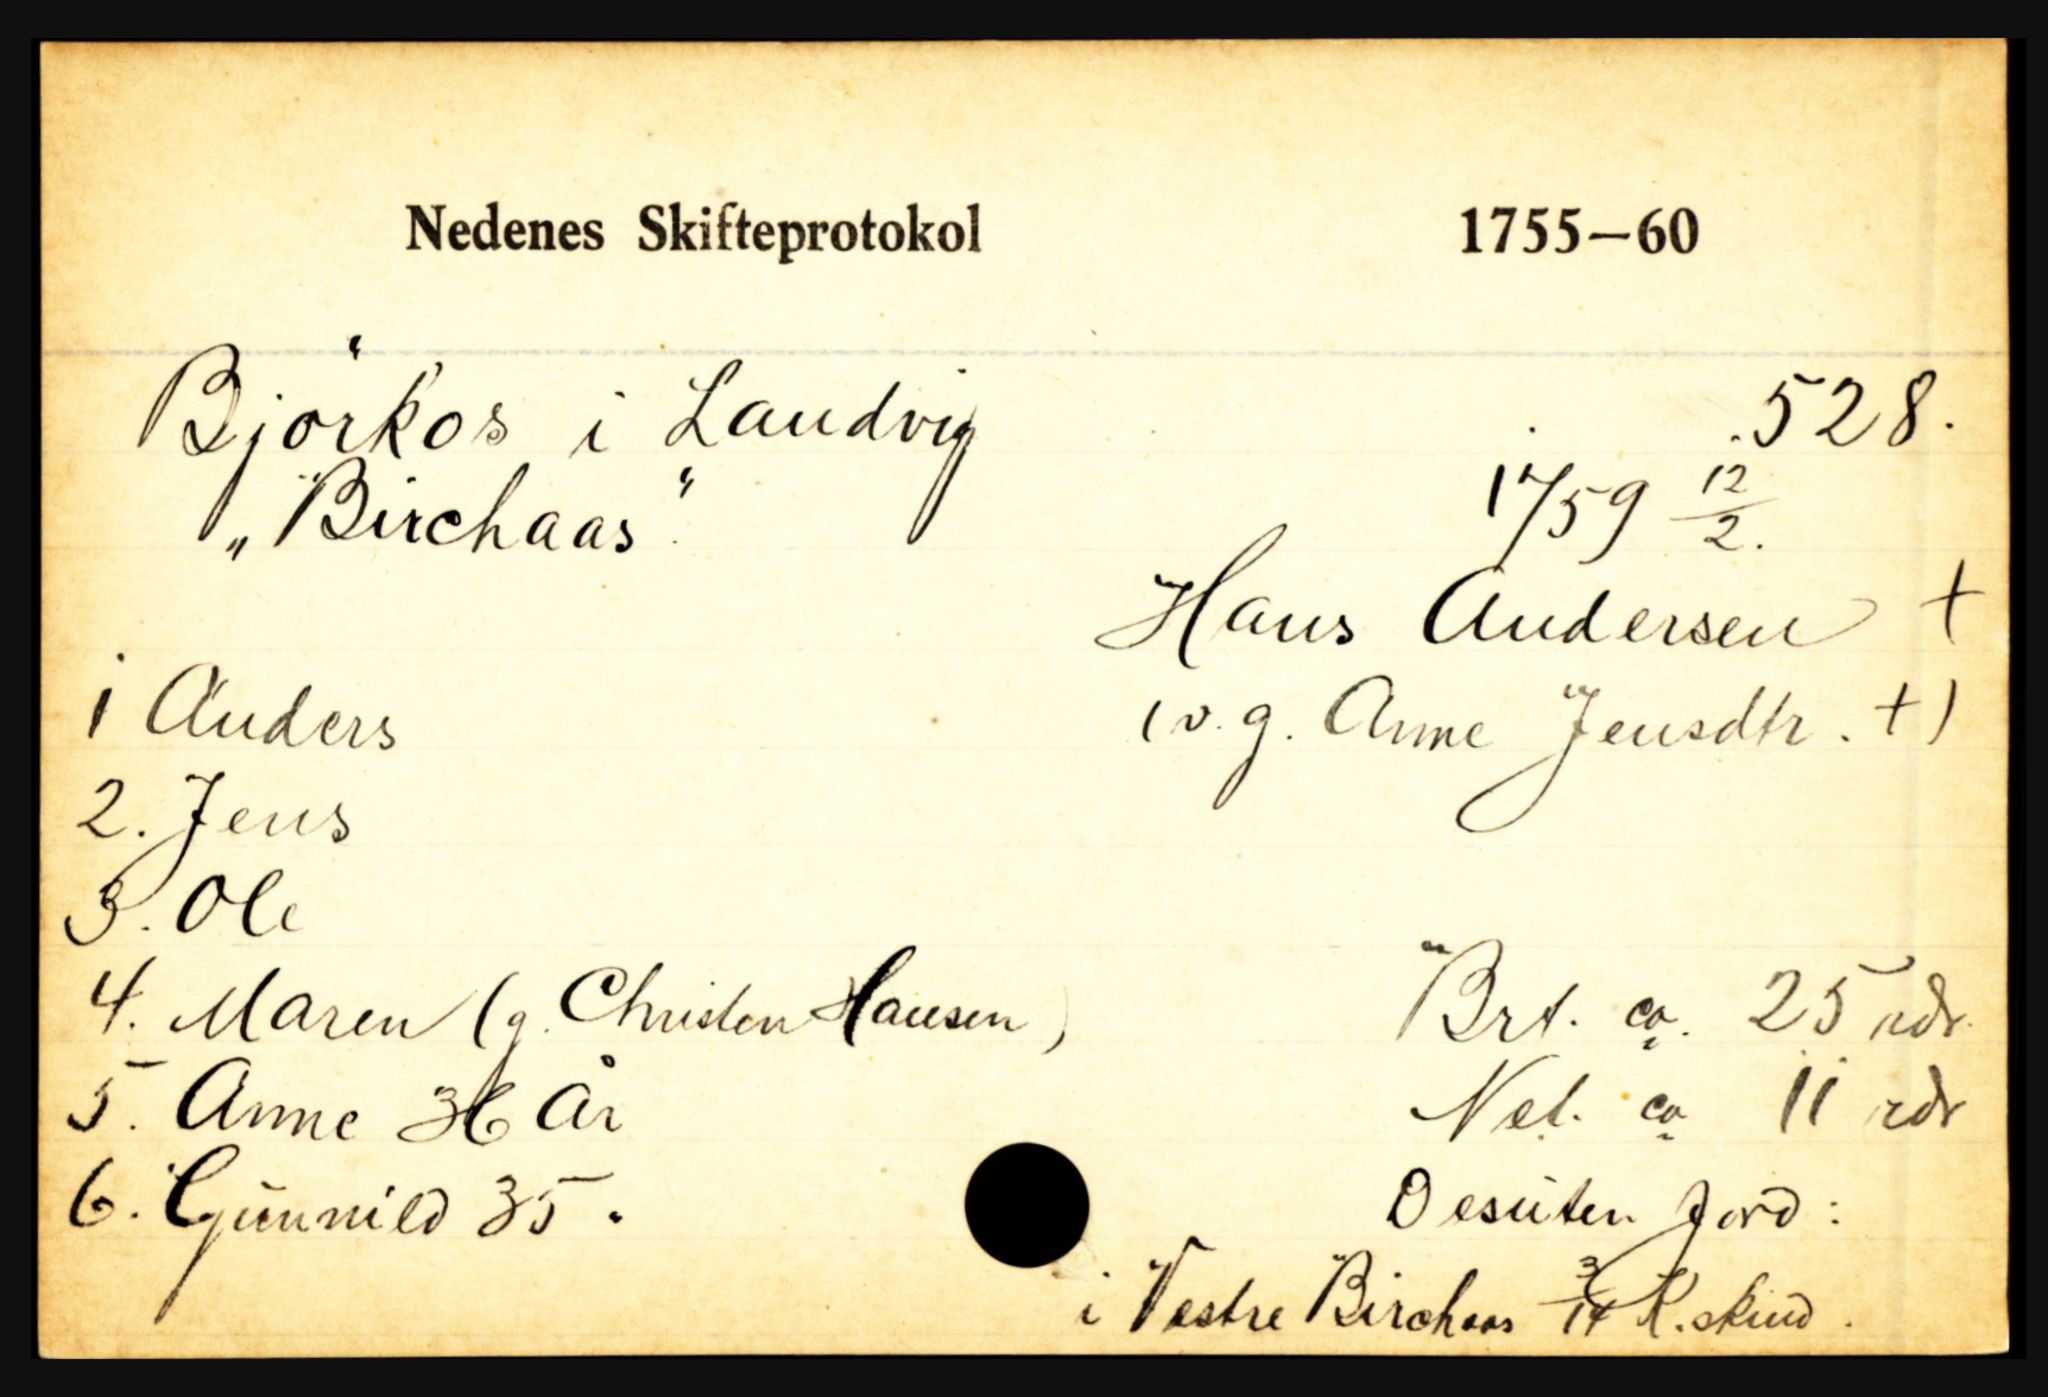 Nedenes Skifteprotokol 1755—60
Björkös i Landvig .528.
„Birchaas“ 1759 12/2.
Hans Andersen +
1 Anders (v. g. Anne Jensdtr. +)
2. Jens
3. Ole
4. Maren (g. Christen Hansen) Brt. ca. 25 rdr.
5. Anne år Net. ca 11 rdr
6. Gunnild 35. Desuten Jord:
i Vestre Birchaas 3/14 K. skind.